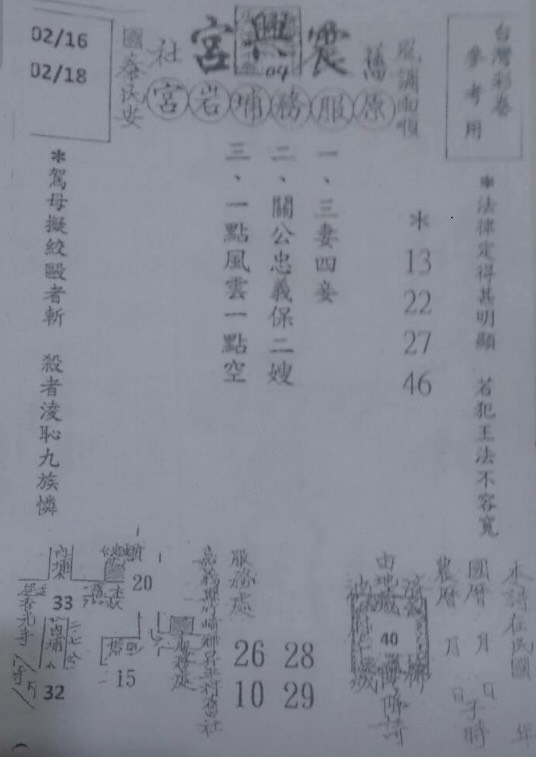 台灣彩卷
參考用
風調雨順
國泰民安
震興宮
04
舊社
原服務埔岩宮
02/16
02/18
*法律定得甚明顯 若犯王法不容寬
*
13
22
27
46
一、三妻四妾
二、關公忠義保二嫂
三、一點風雲一點空
*駕母擬絞毆者斬 殺者淩恥九族憐
本詩在民國 年
國曆 月 日
農曆 月 日子時
40
服務處
28
29
26
10
20
15
33
32